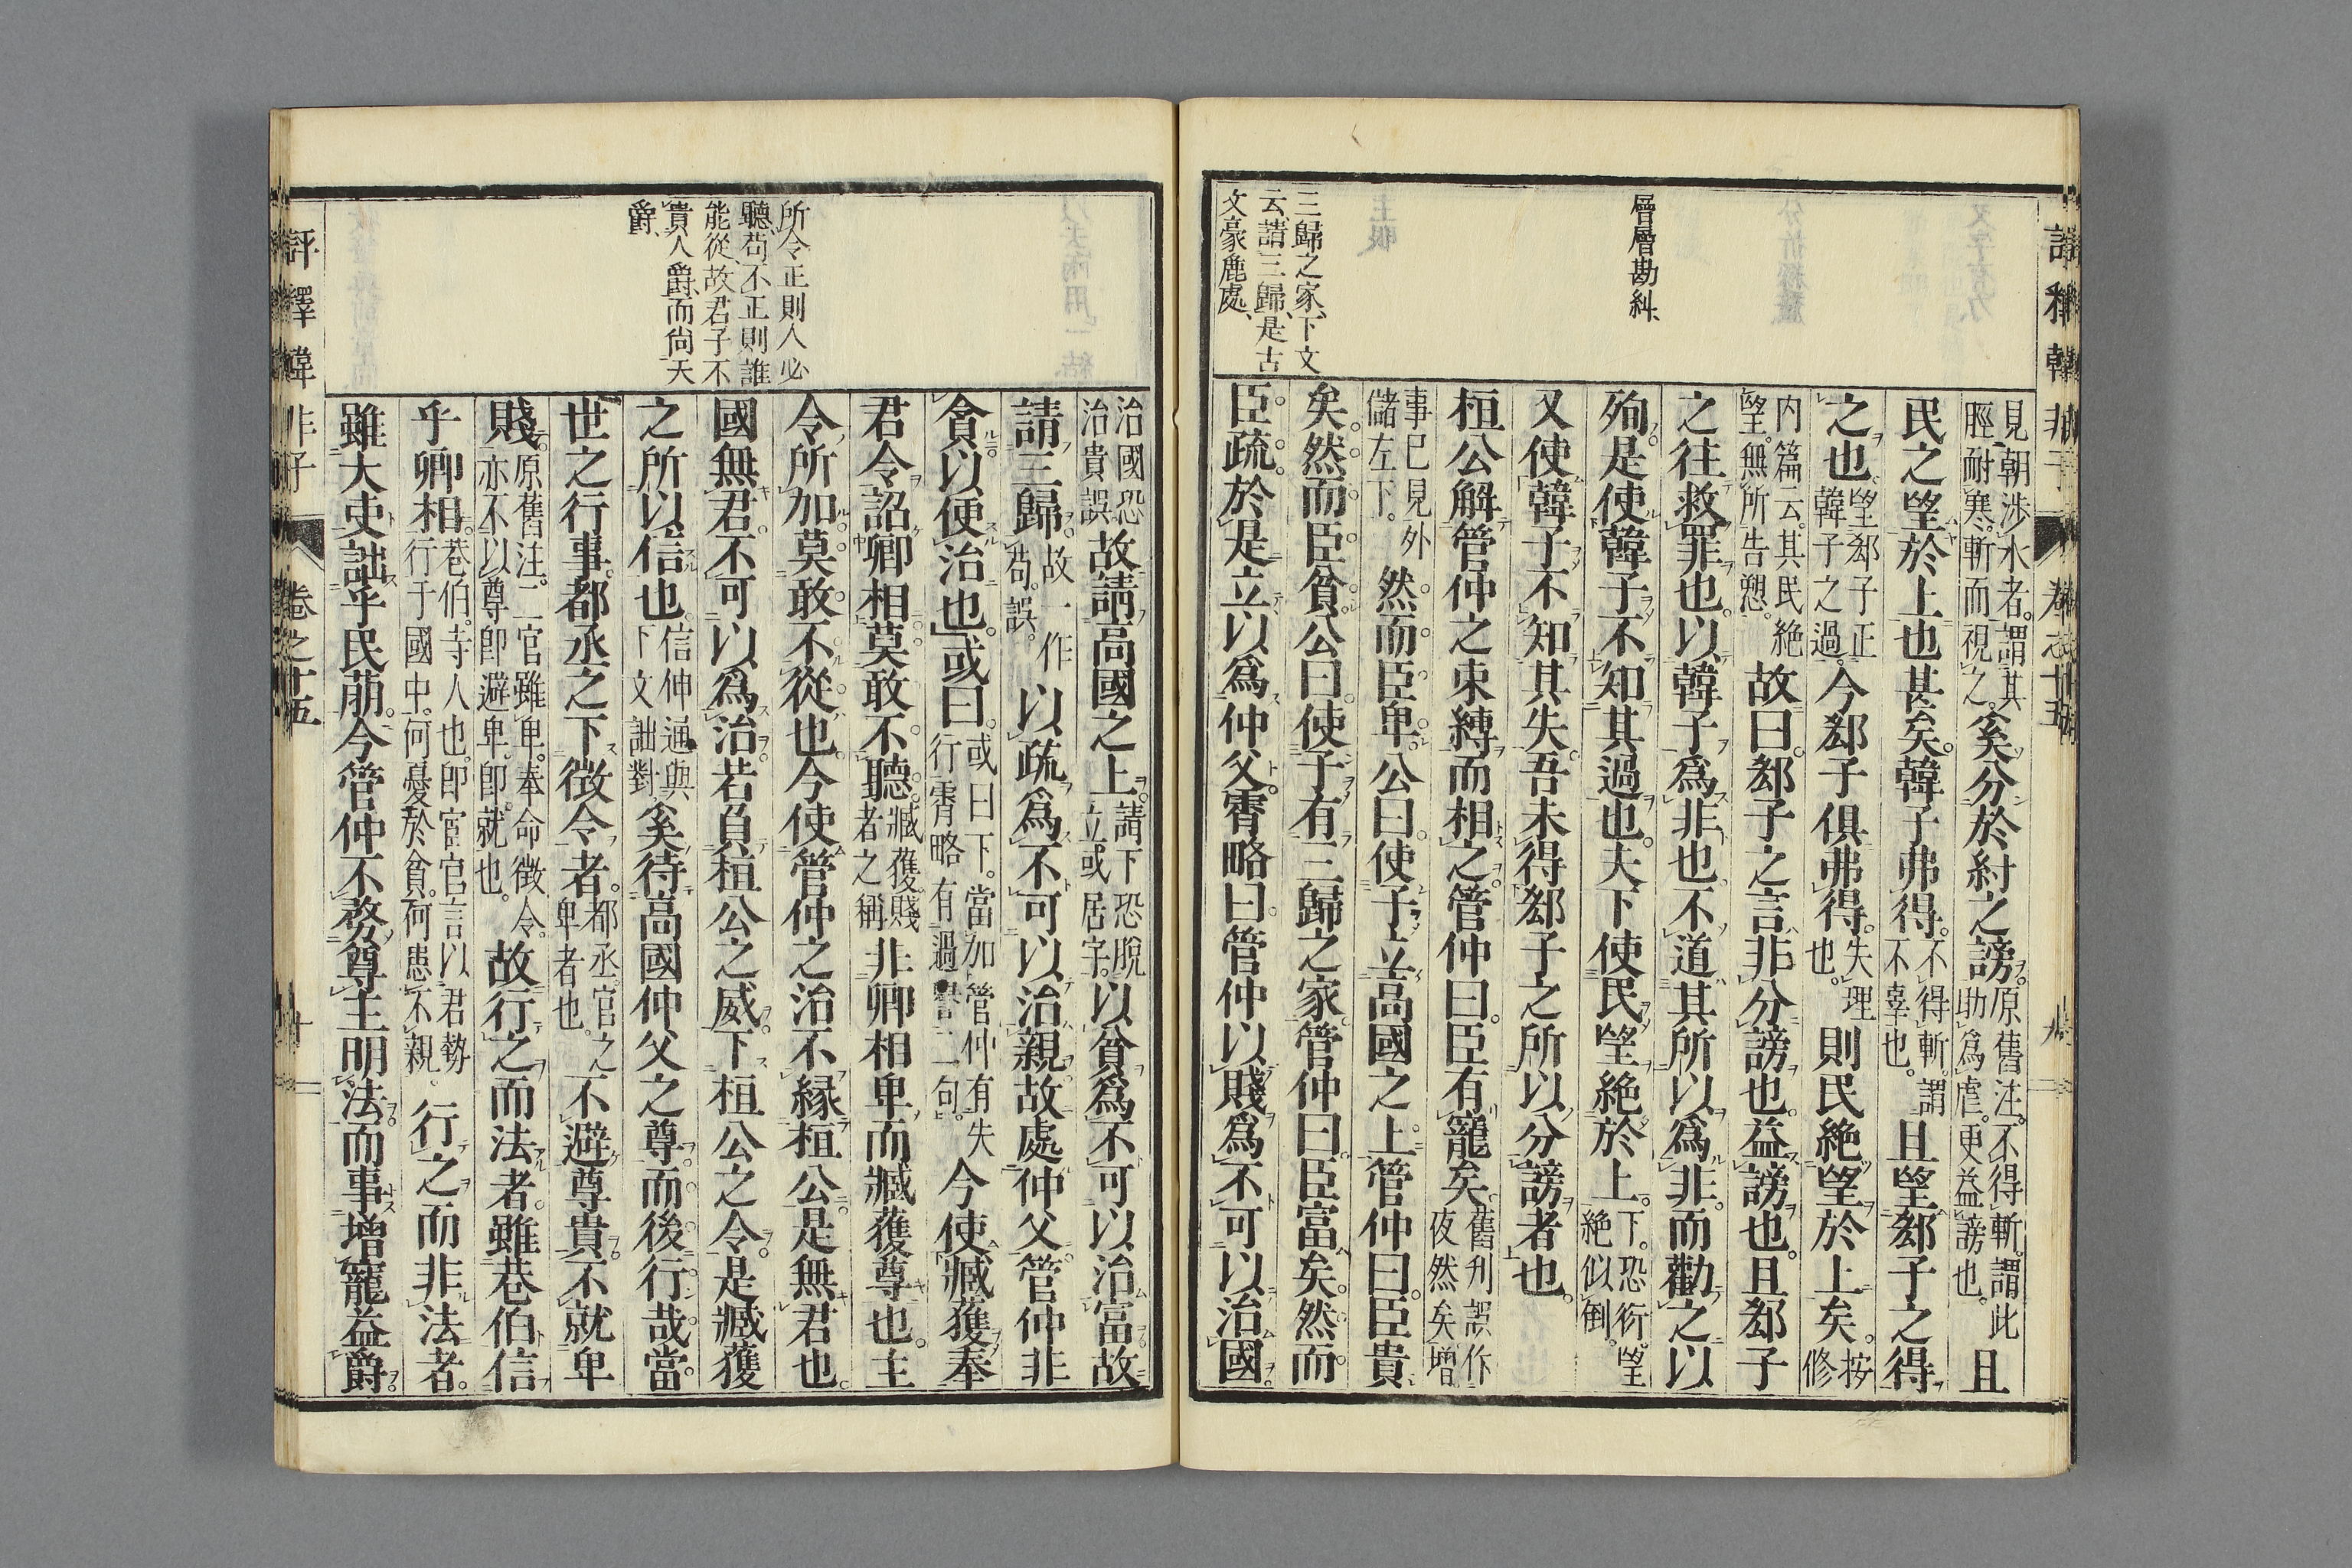 層層勘糾、
三歸之家、下文
云、請三歸、是古
文豪麁處、
見朝渉水者。謂其脛耐寒。斬而視之。奚分於紂之謗。原舊注。不得斬。謂此助爲虐。更益謗也。且
民之望於上也甚矣。韓子弗得。不得斬。謂不辜也。且望郄子之得
之也。望郄子正韓子之過。今郄子俱弗得。失理也。則民絶望於上矣。按修
内篇云。其民絶望。無所告愬。故曰。郄子之言。非分謗也。益謗也。且郄子
之往救罪也。以韓子爲非也。不道其所以爲非。而勸之以
殉。是使韓子不知其過也。夫下使民望絶於上。下。恐衍。望絶似倒。
又使韓子不知其失。吾未得郄子之所以分謗者也。
桓公解管仲之束縛而相之。管仲曰。臣有寵矣。舊刋誤作夜然矣増
事已見外儲左下。然而臣卑。公曰。使子立高國之上。管仲曰。臣貴
矣。然而臣貧。公曰。使子有三歸之家。管仲曰。臣富矣。然而
臣疏。於是立以爲仲父。霄略曰。管仲以賤爲不可以治國。
所令正則人必
聽、苟不正則誰
能從、故君子不
貴人爵、而尙天
爵、
治國恐治貴誤。故請高國之上。請下恐脫立或居字。以貧爲不可以治富。故
請三歸。故一作苟。誤。以疏爲不可以治親。故處仲父。管仲非
貪。以便治也。或曰。或曰下。當加管仲有失行霄略有過譽二句。今使臧獲奉
君令詔卿相。莫敢不聽。臧獲。賤者之稱。非卿相卑而臧獲尊也。主
令所加。莫敢不從也。今使管仲之治。不縁桓公。是無君也。
國無君。不可以爲治。若負桓公之威。下桓公之令。是臧獲
之所以信也。信伸通。與下文詘對。奚待高國仲父之尊而後行哉。當
世之行事都丞之下徴令者。都丞。官之卑者也。不避尊貴。不就卑
賤。原舊注。二官雖卑。奉命徴令。亦不以尊卽避。卑卽就也。故行之而法者。雖巷伯信
乎卿相。巷伯。寺人也。卽宦官。言以君勢行于國中。何憂於貧。何患不親。行之而非法者。
雖大吏詘乎民萠。今管仲不務尊主明法。而事増寵益爵。
評釋韓非子
卷之十五
十